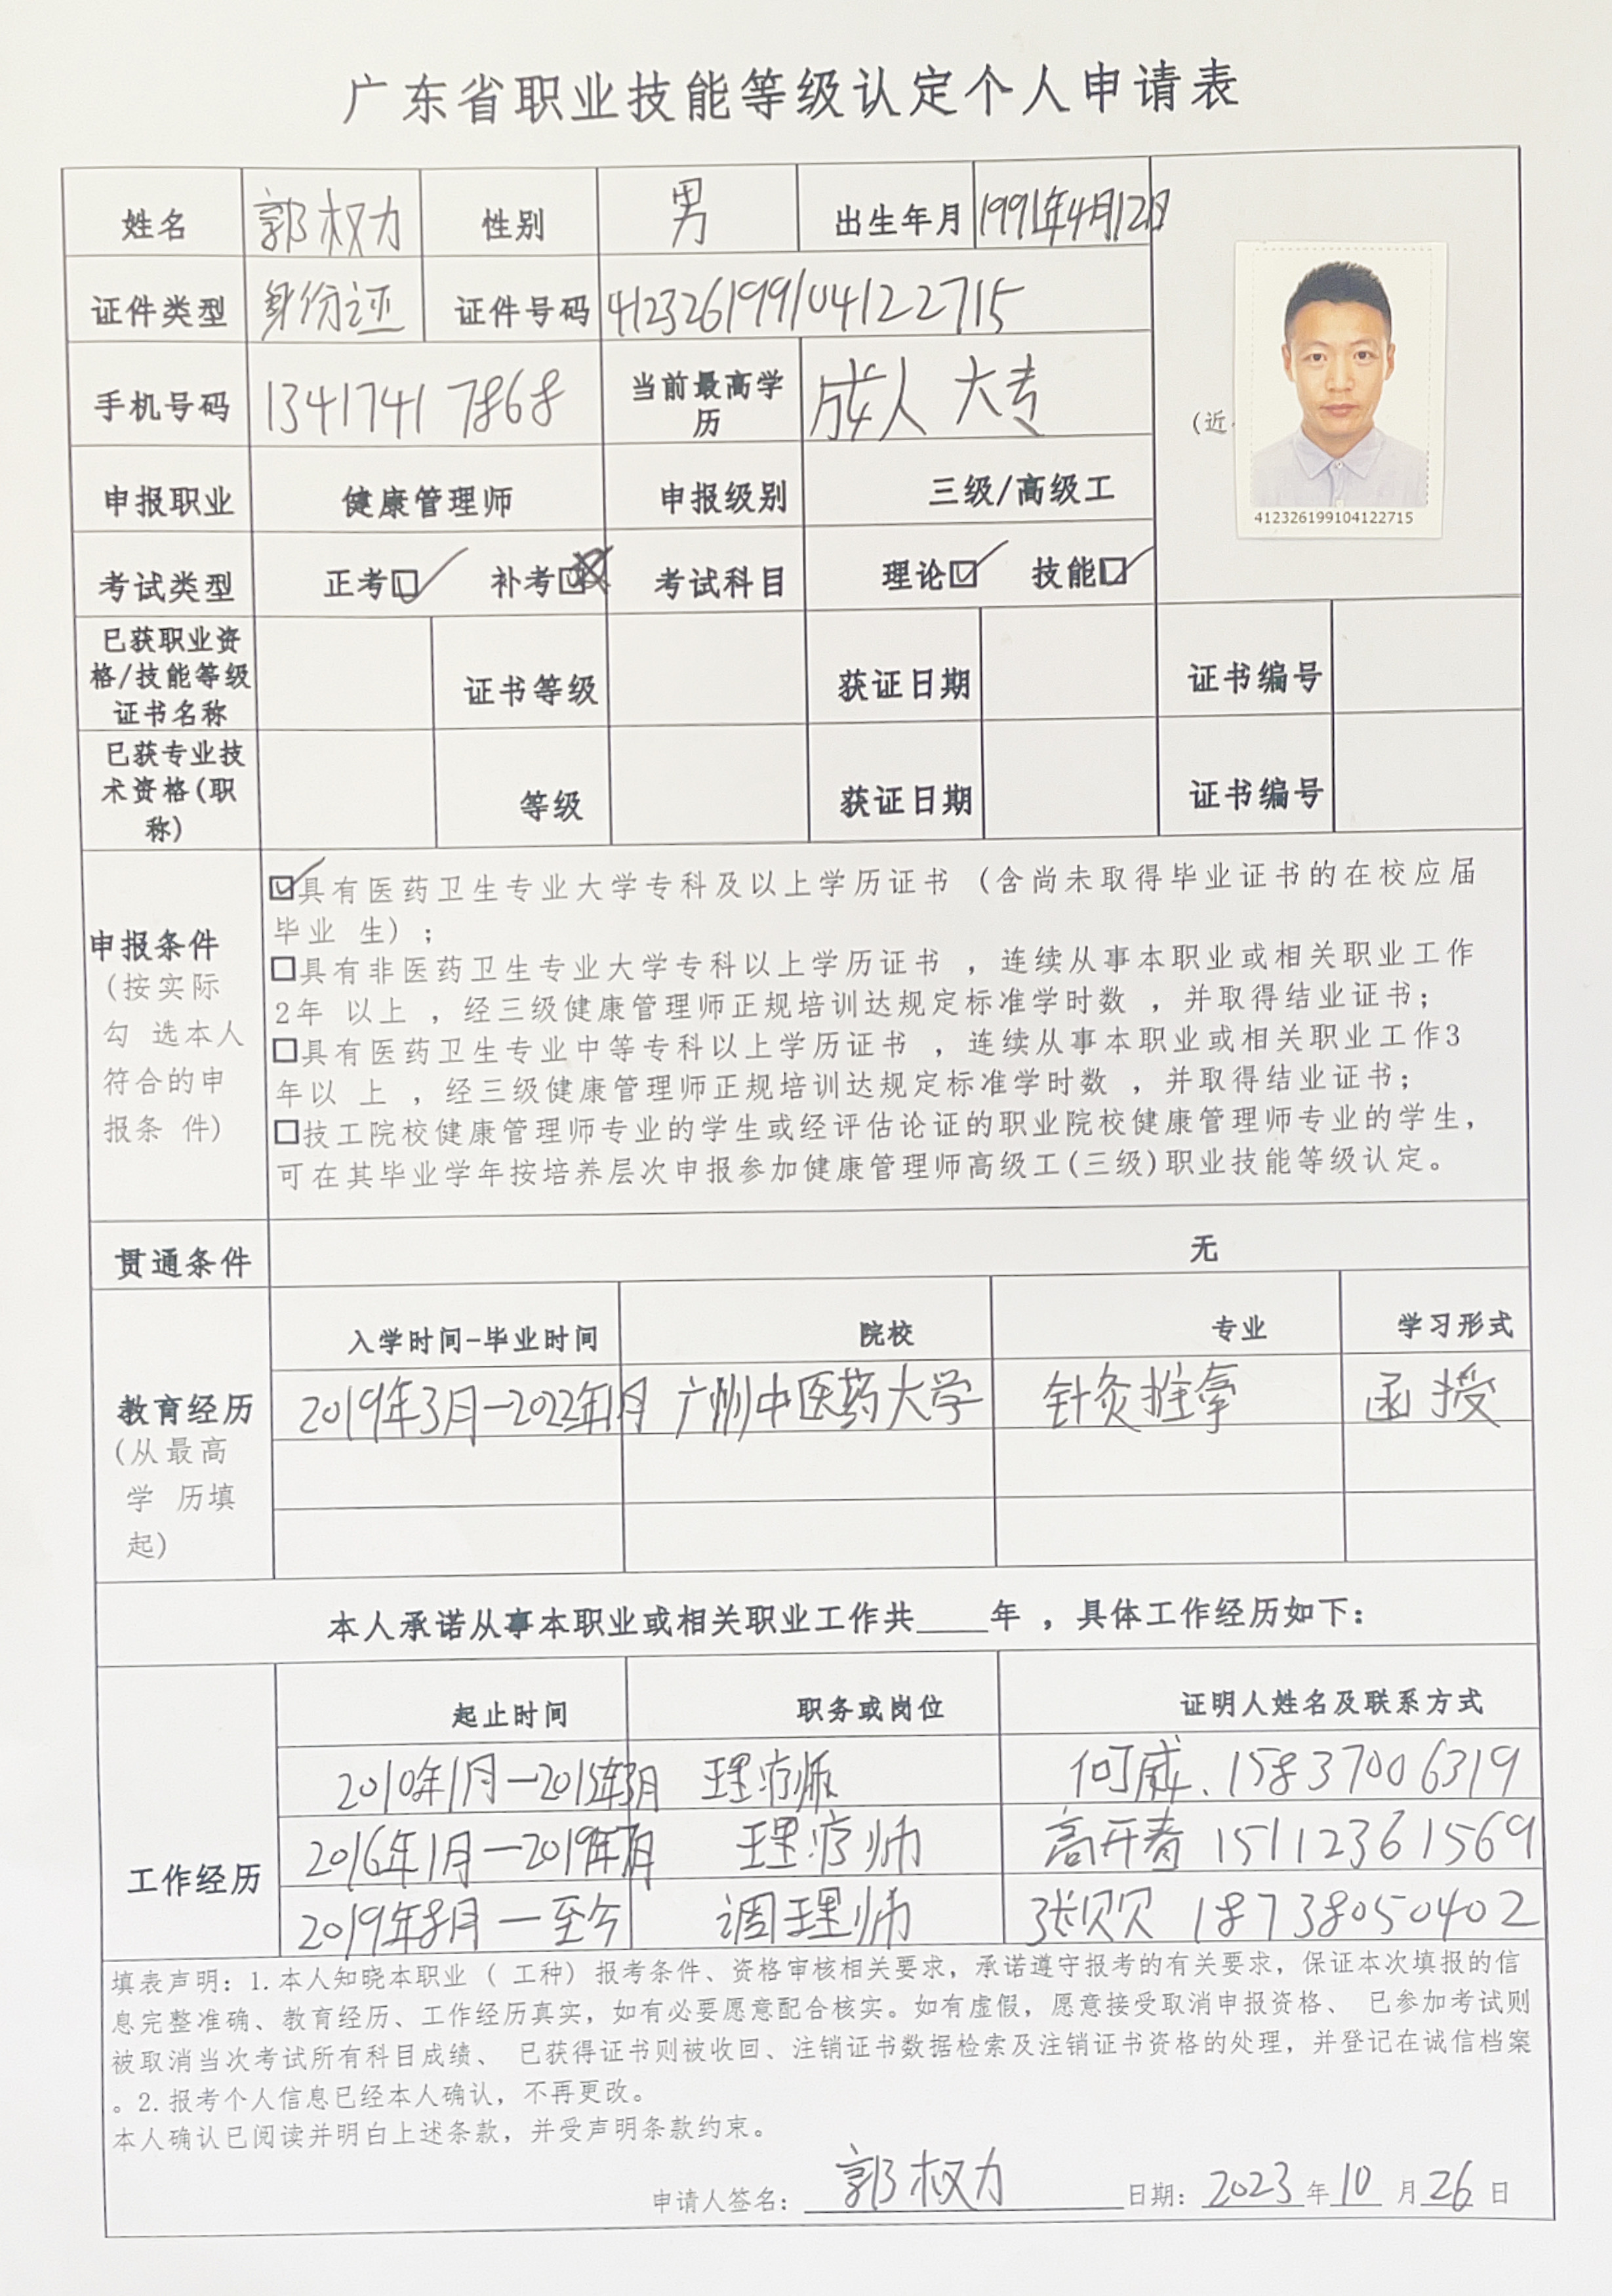 广东省职业技能等级认定个人申请表
姓名 郭权力 性别 男 出生年月 1991年4月12日
证件类型 身份证 证件号码 412326199104122715
(近
手机号码 13417417868 当前最高学
历 成人 大专
申报职业 健康管理师 申报级别 三级/高级工
412326199104122715
考试类型 正考☑ 补考☒ 考试科目 理论☑ 技能☑
已获职业资
格/技能等级
证书名称 证书等级 获证日期 证书编号
已获专业技
术资格(职
称) 等级 获证日期 证书编号
申报条件
(按实际
勾 选本人
符合的申
报条 件)
☑具有医药卫生专业大学专科及以上学历证书 (含尚未取得毕业证书的在校应届
毕业 生) ;
□具有非医药卫生专业大学专科以上学历证书 , 连续从事本职业或相关职业工作
2年 以上 , 经三级健康管理师正规培训达规定标准学时数 , 并取得结业证书;
□具有医药卫生专业中等专科以上学历证书 , 连续从事本职业或相关职业工作3
年以 上 , 经三级健康管理师正规培训达规定标准学时数 , 并取得结业证书;
□技工院校健康管理师专业的学生或经评估论证的职业院校健康管理师专业的学生,
可在其毕业学年按培养层次申报参加健康管理师高级工(三级)职业技能等级认定。
贯通条件 无
教育经历
(从最高
学 历填
起)
入学时间-毕业时间 院校 专业 学习形式
2019年3月-2022年1月 广州中医药大学 针灸推拿 函授
本人承诺从事本职业或相关职业工作共____年 , 具体工作经历如下:
工作经历
起止时间 职务或岗位 证明人姓名及联系方式
2010年1月-2015年3月 理疗师 何威、15837006319
2016年1月-2019年7月 理疗师 高开春 15112361569
2019年8月-至今 调理师 张贝贝 18738050402
填表声明: 1. 本人知晓本职业 ( 工种) 报考条件、资格审核相关要求, 承诺遵守报考的有关要求, 保证本次填报的信
息完整准确、教育经历、工作经历真实, 如有必要愿意配合核实。如有虚假, 愿意接受取消申报资格、 已参加考试则
被取消当次考试所有科目成绩、 已获得证书则被收回、注销证书数据检索及注销证书资格的处理, 并登记在诚信档案
。2. 报考个人信息已经本人确认, 不再更改。
本人确认已阅读并明白上述条款, 并受声明条款约束。
申请人签名: 郭权力 日期: 2023 年 10 月 26 日